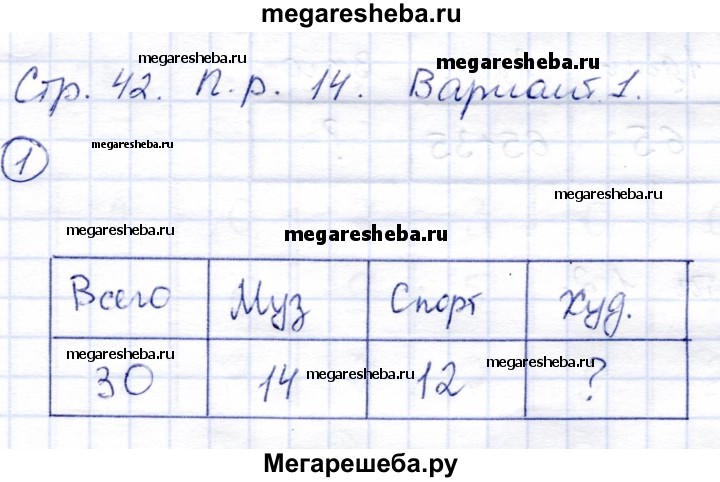 megaresheba.ru
megaresheba.ru megaresheba.ru
Стр. 42. П.р. 14. Вариант 1.
1 megaresheba.ru
megaresheba.ru
megaresheba.ru megaresheba.ru
Всего Муз Спорт Худ.
megaresheba.ru megaresheba.ru megaresheba.ru
30 14 12 ?
Мегарешеба.ру